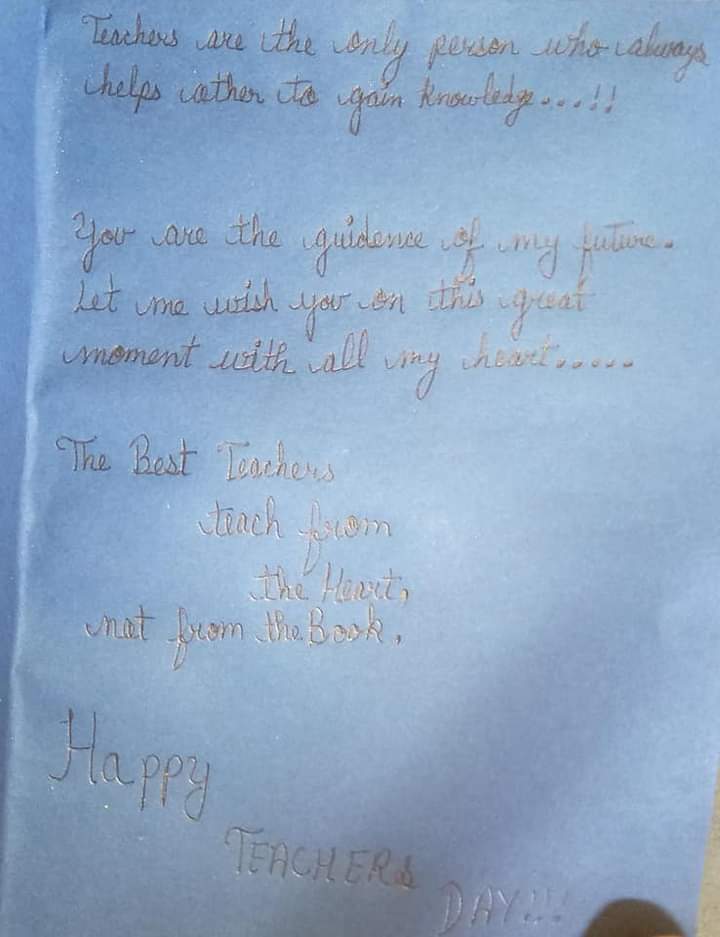 Teachers are the only person who always
helps other to gain knowledge...!!
You are the guidence of my future.
Let me wish you on this great
moment with all my heart.....
The Best Teachers
teach from
the Heart,
not from the Book.
Happy
TEACHERS
DAY!!!